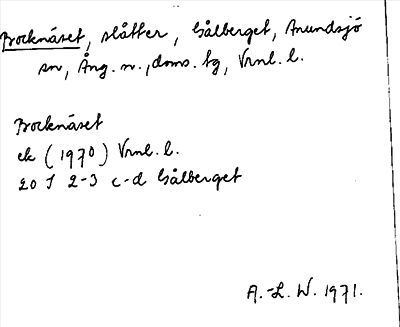 Brocknäset, slåtter, Gålberget, Anundsjö
sn, Ång. n., doms. tg, Vrnl. l.
Brocknäset
ek (1970) Vrnl. l.
20 J 2-3 c-d Gålberget
A.-L. W. 1971.